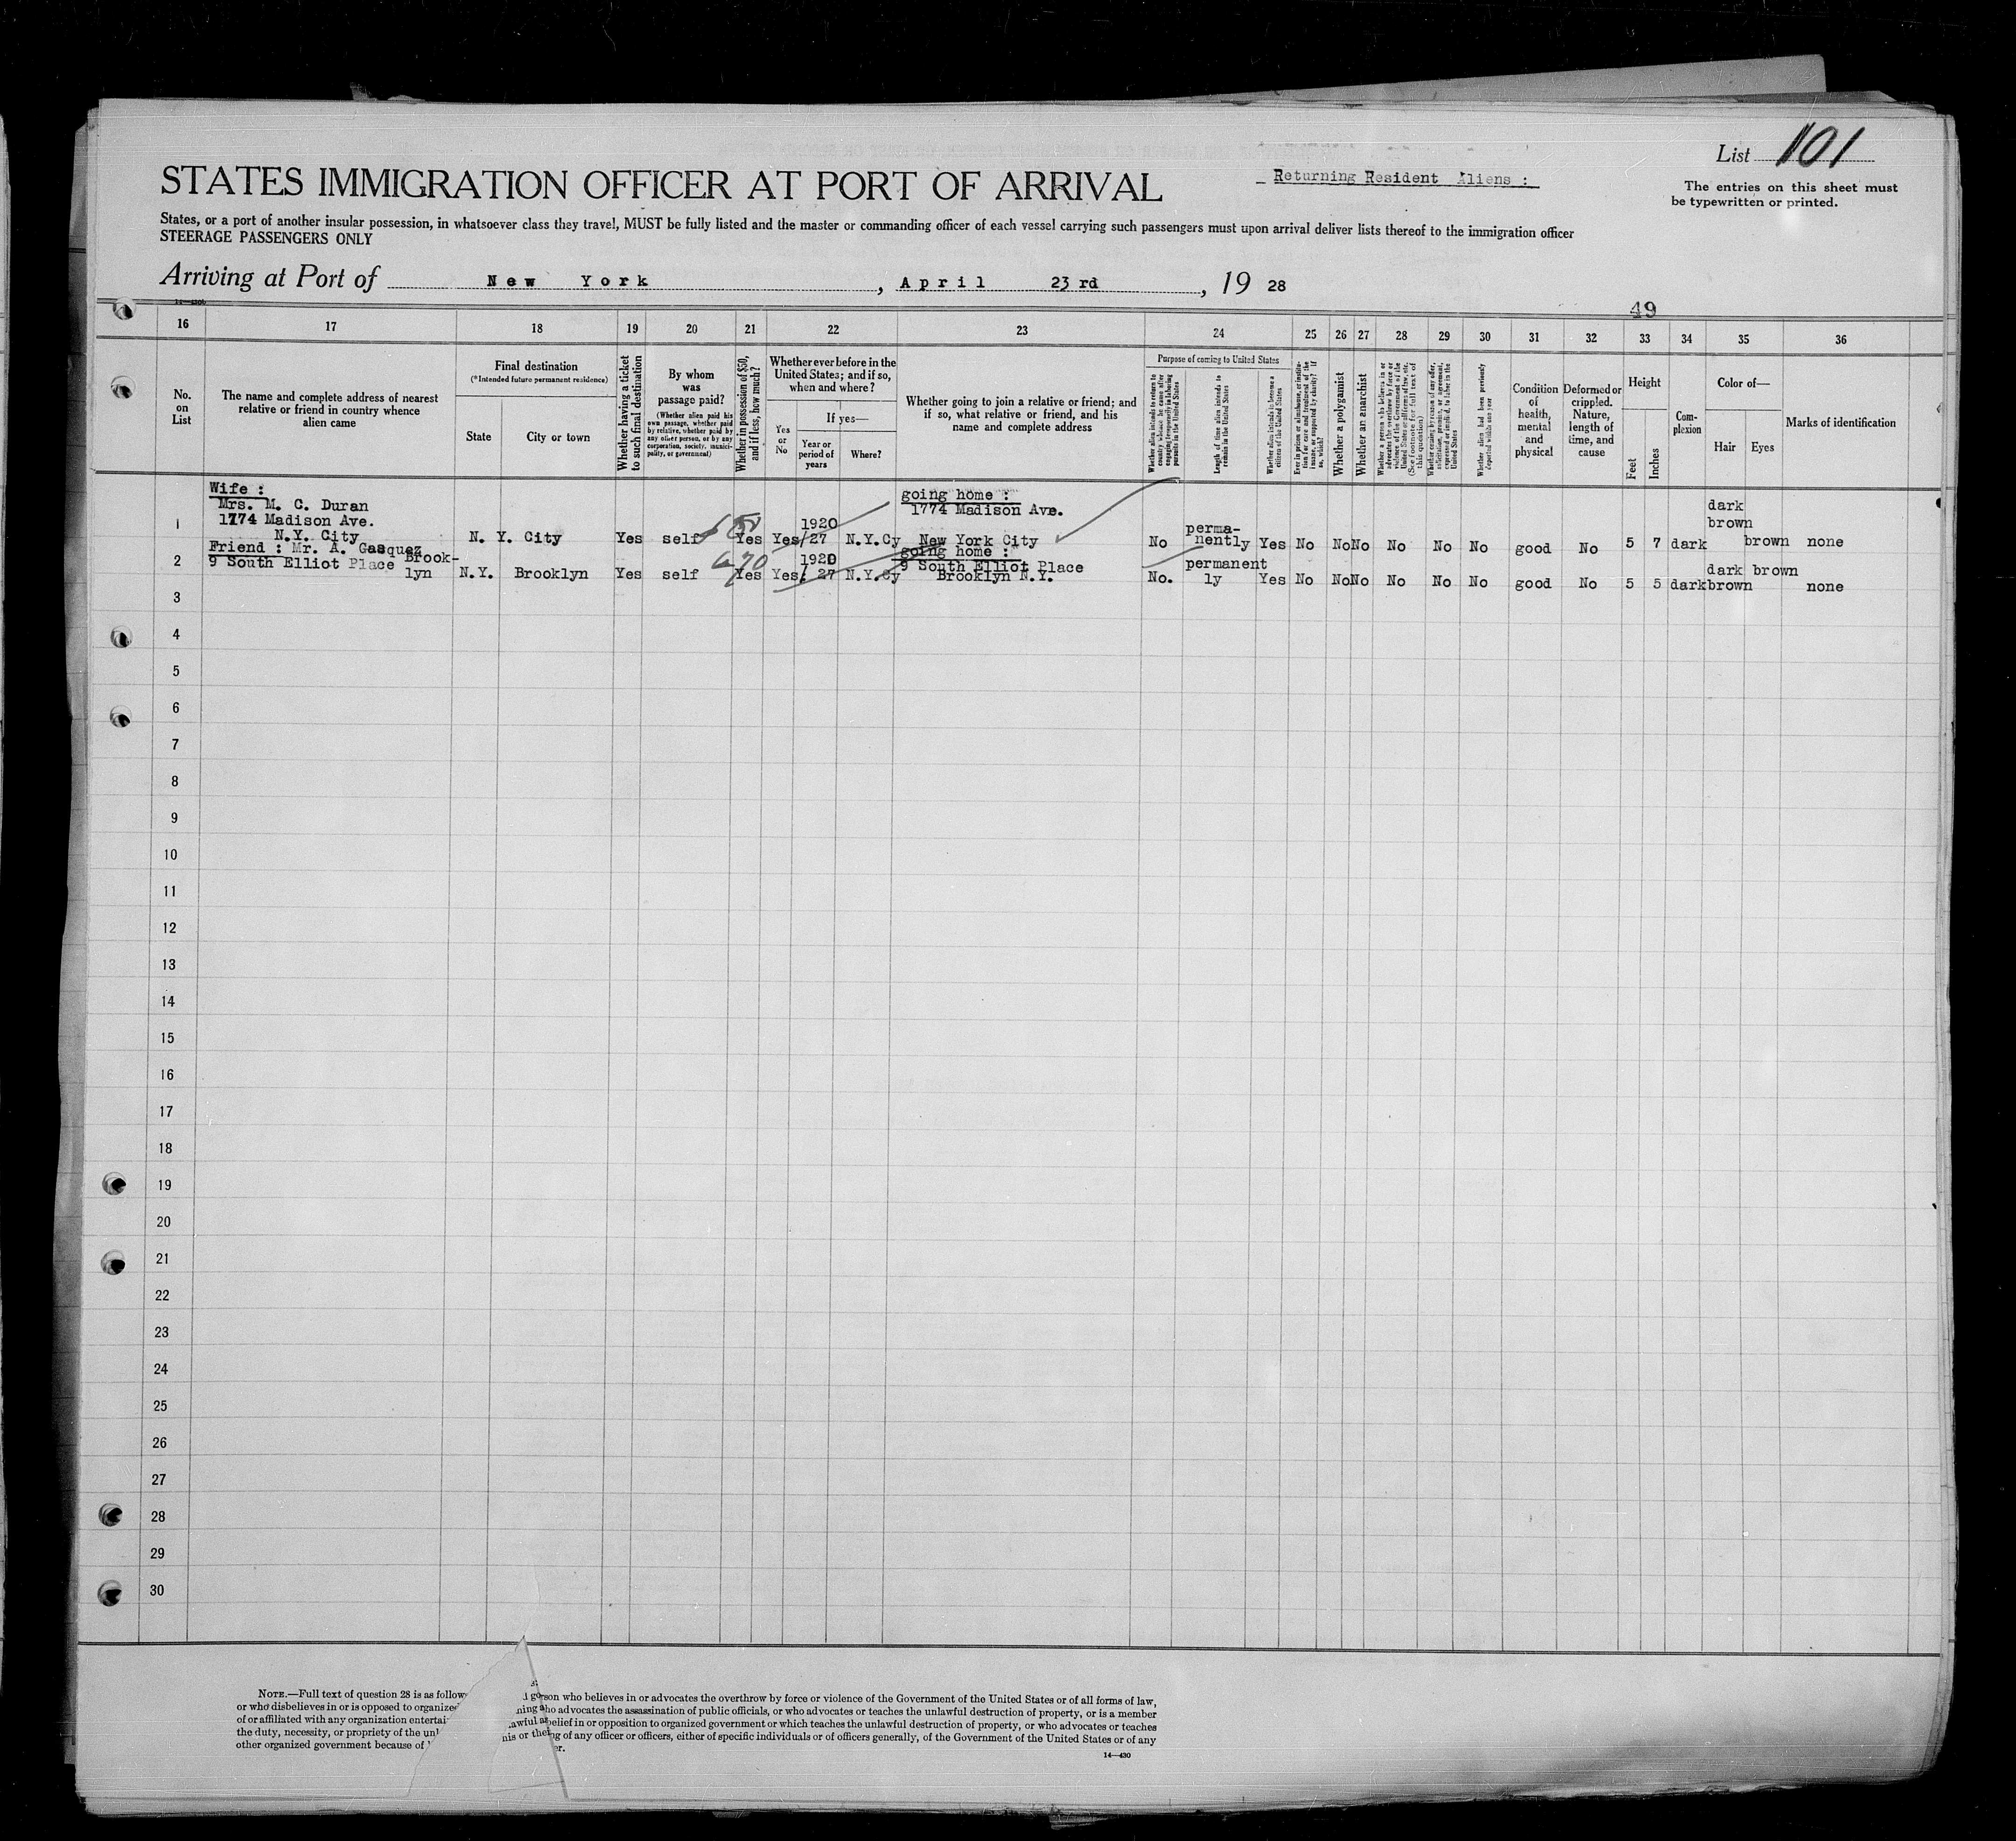 List 101
Returning Resident Aliens :
The entries on this sheet must
be typewritten or printed.
STATES IMMIGRATION OFFICER AT PORT OF ARRIVAL
States, or a port of another insular possession, in whatsoever class they travel, MUST be fully listed and the master or commanding officer of each vessel carrying such passengers must upon arrival deliver lists thereof to the immigration officer
STEERAGE PASSENGERS ONLY
Arriving at Port of New York, April 23 rd, 19 28
49
16 17 18 19 20 21 22 23 24 25 26 27 28 29 30 31 32 33 34 35 36
No.
on
List
The name and complete address of nearest
relative or friend in country whence
alien came
Final destination
(*Intended future permanent residence)
State
City or town
Whether having a ticket
to such final destination
By whom
was
passage paid?
(Whether alien paid his
own passage, whether paid
by relative, whether paid by
any other person, or by any
corporation, society, munici-
pality, or government)
Whether in possession of $50,
and if less, how much?
Whether ever before in the
United States; and if so,
when and where?
Yes
or
No
If yes—
Year or
period of
years
Where?
Whether going to join a relative or friend; and
if so, what relative or friend, and his
name and complete address
Purpose of coming to United States
Whether alien intends to return to
country whence he came after
engaging temporarily in laboring
pursuits in the United States
Length of time alien intends to
remain in the United States
Whether alien intends to become a
citizen of the United States
Ever in prison or almshouse, or institu-
tion for care and treatment of the
insane, or supported by charity? If
so, which?
Whether a polygamist
Whether an anarchist
Whether a person who believes in or
advocates the overthrow by force or
violence of the Government of the
United States or all forms of law, etc.
(See footnote for full text of
this question)
Whether coming by reason of any offer,
solicitation, promise, or agreement,
expressed or implied, to labor in the
United States
Whether alien had been previously
deported within one year
Condition
of
health,
mental
and
physical
Deformed or
crippled.
Nature,
length of
time, and
cause
Height
Feet
Inches
Com-
plexion
Color of—
Hair
Eyes
Marks of identification
1
Wife :
Mrs. M. C. Duran
1774 Madison Ave.
N.Y. City
N. Y. City Yes self 50 Yes Yes 1920
/27 N.Y.Cy
going home :
1774 Madison Ave.
New York City
No perma-
nently Yes No No No No No No good No 5 7 dark dark
brown brown none
2
Friend : Mr. A. Gasquez
9 South Elliot Place Brook-
lyn
N.Y. Brooklyn Yes self 70 Yes Yes 1920
/ 27 N.Y.Cy
going home :
9 South Elliot Place
Brooklyn N.Y.
No. permanent
ly Yes No No No No No No good No 5 5 dark dark brown
brown none
3
4
5
6
7
8
9
10
11
12
13
14
15
16
17
18
19
20
21
22
23
24
25
26
27
28
29
30
NOTE.—Full text of question 28 is as follow
son who believes in or advocates the overthrow by force or violence of the Government of the United States or of all forms of law,
or who disbelieves in or is opposed to organize
ho advocates the assassination of public officials, or who advocates or teaches the unlawful destruction of property, or is a member
of or affiliated with any organization entertai
belief in or opposition to organized government or which teaches the unlawful destruction of property, or who advocates or teaches
the duty, necessity, or propriety of the unl
ng of any officer or officers, either of specific individuals or of officers generally, of the Government of the United States or of any
other organized government because of
er.
14—430